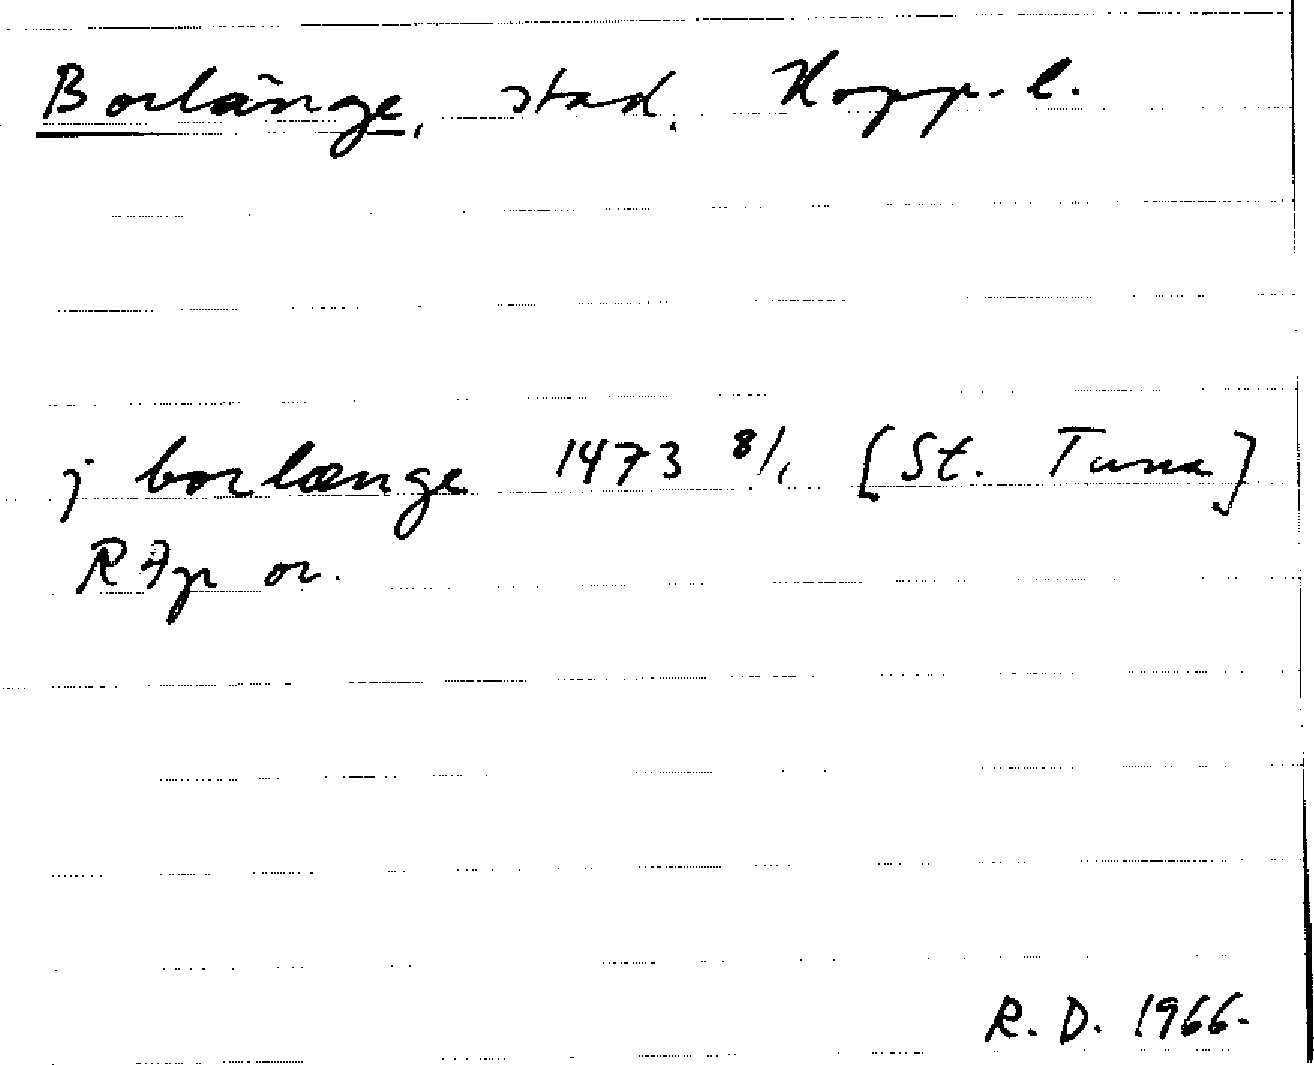 Borlänge, stad. Kopp. l.
j borlænge 1473 8/1 [St. Tuna]
RAp or.
R. D. 1966.